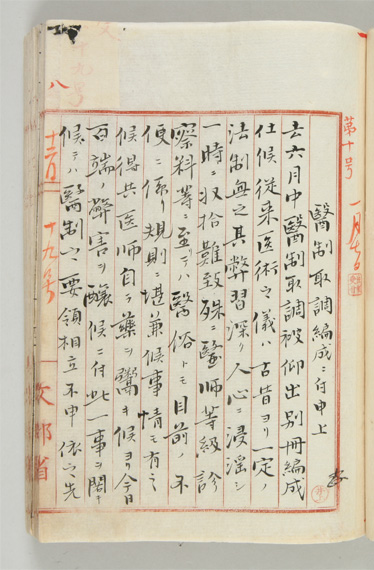 第十号
醫制取調編成ニ付申上
去六月中醫制取調被仰出別冊編成
仕候従来医術之儀ハ古昔ヨリ一定ノ
法制無之其弊習深ク人心ニ浸淫シ
一時ニ収拾難致殊ニ医師等級診
察料等ニ至テハ醫俗トモ目前ノ不
便ニ係リ規則ニ堪兼候事情モ有之
候得共医師自ラ藥ヲ鬻キ候ヨリ今日
百端ノ弊害ヲ醸候ニ付此一事ヲ闕キ
候テハ醫制之要領相立不申依之先
十二月 十九号
文部省
八